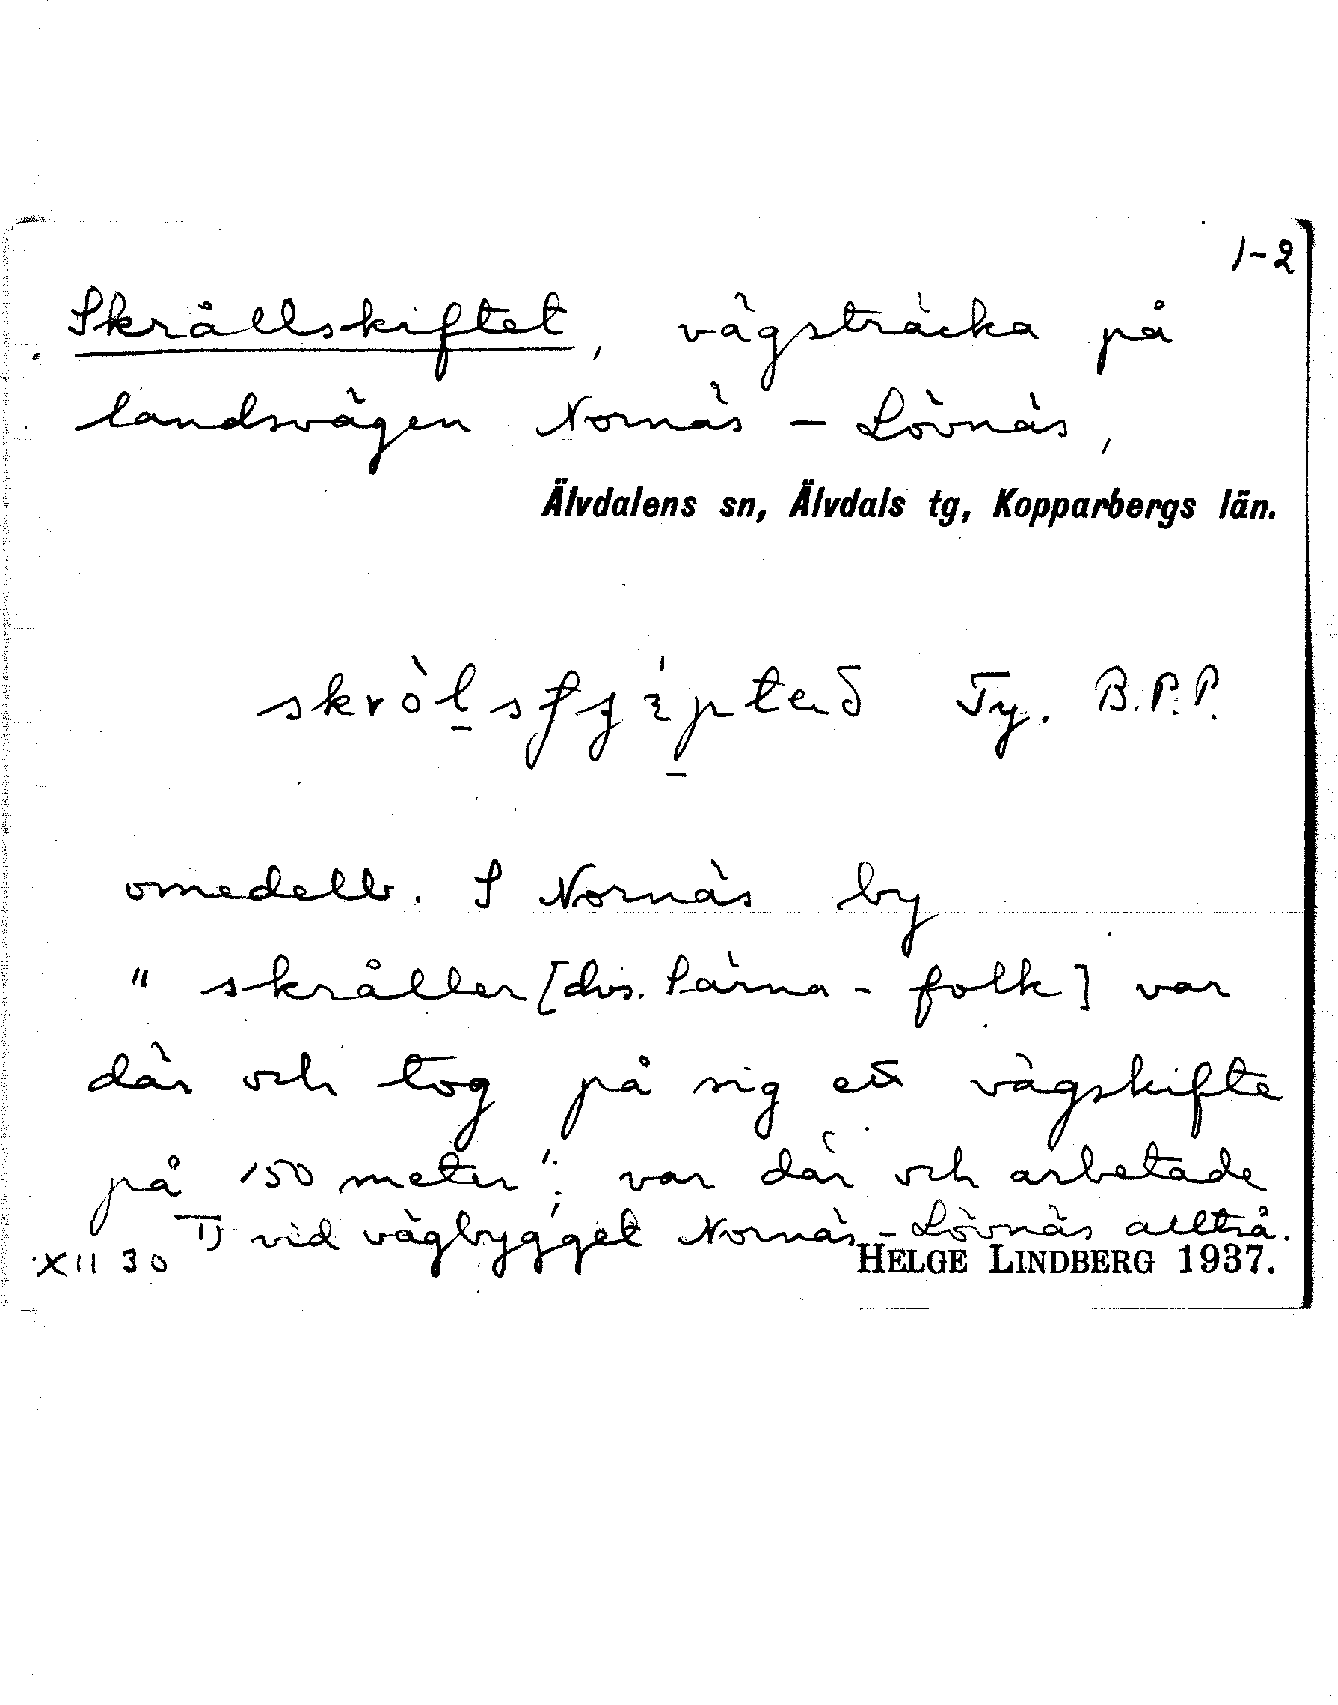 1-2
Skrållskiftet, vägsträcka på
landsvägen Nornäs - Lövnäs,
Älvdalens sn, Älvdals tg, Kopparbergs län.
Ty. B.P.P.
omedelb. S Nornäs by
"skråller [dvs. Särna-folk] var
där och tog på sig ett vägskifte
på 150 meter¹; var där och arbetade
1) vid vägbygget Nornäs-Lövnäs alltså.
XII 30 HELGE LINDBERG 1937.